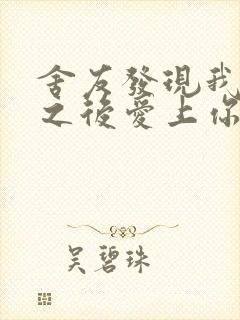 舍友發現我
之後愛上你
吴碧珠